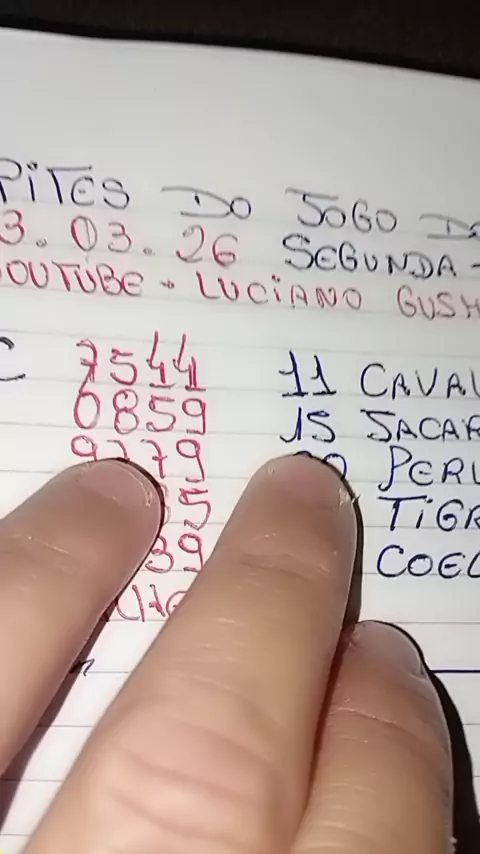 PITES DO JOGO DO
3.03.26 SEGUNDA-
YOUTUBE - LUCIANO GUSM
C 7544 11 CAVAL
0859 15 JACAR
9779 20 PERU
5 TIGR
39 COEL